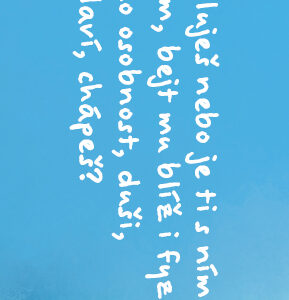 luješ nebo je ti s ním
m, bejt mu blíž i fyz
o osobnost, duši,
laví, chápeš?